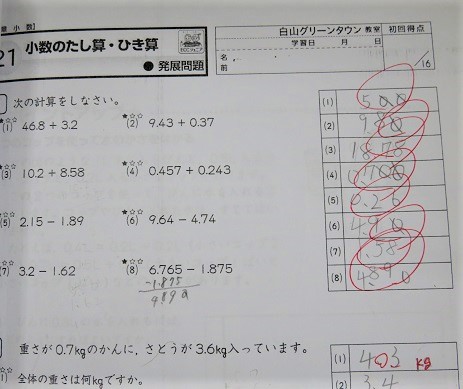 量 小数】
21 小数のたし算・ひき算
●発展問題
白山グリーンタウン 教室 初回得点
学習日 月 日
名前
/16
次の計算をしなさい。
★☆☆ (1) 46.8 + 3.2 ★☆☆ (2) 9.43 + 0.37
☆☆ (3) 10.2 + 8.58 ★☆☆ (4) 0.457 + 0.243
☆☆ (5) 2.15 - 1.89 ★☆☆ (6) 9.64 - 4.74
☆☆ (7) 3.2 - 1.62 ★☆☆ (8) 6.765 - 1.875
-1.875
4890
(1) 500
(2) 9.80
(3) 18.78
(4) 0.700
(5) 0.26
(6) 4.90
(7) 1.58
(8) 4.890
重さが0.7kgのかんに，さとうが3.6kg入っています。
全体の重さは何kgですか。
(1) 4.3 kg
(2) 3.4